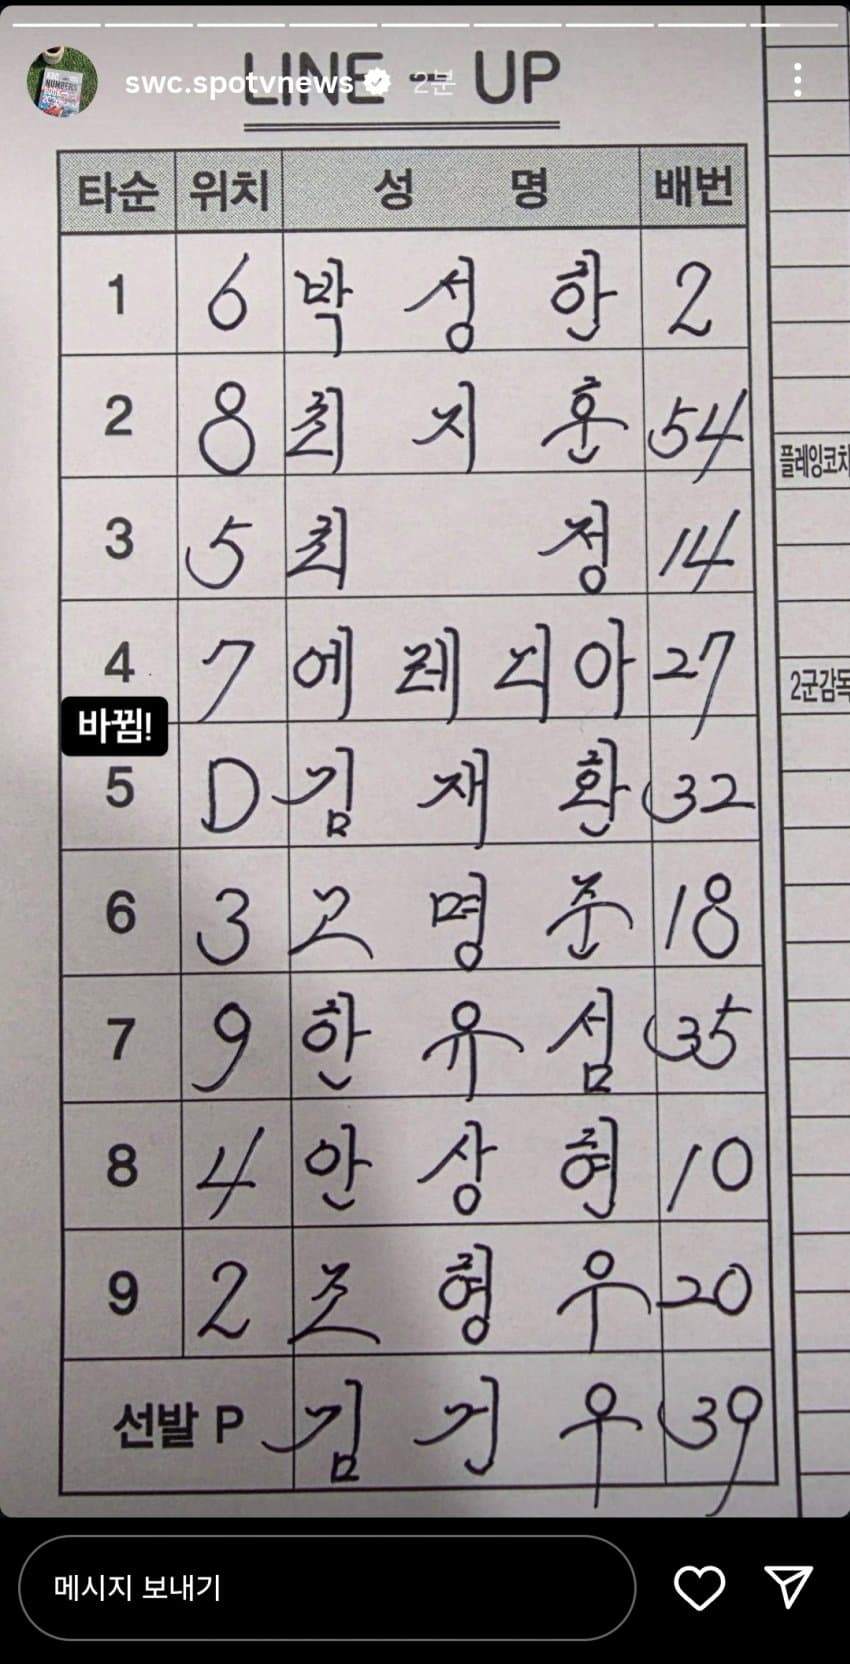 LINE - UP
swc.spotvnews 2분
타순 위치 성 명 배번
1 6 박 성 한 2
2 8 최 지 훈 54
플레잉코치
3 5 최 정 14
4 7 에 레 디 아 27
2군감독
바뀜!
5 D 김 재 환 32
6 3 고 명 준 18
7 9 한 유 섬 35
8 4 안 상 현 10
9 2 조 형 우 20
선발 P 김 건 우 39
메시지 보내기